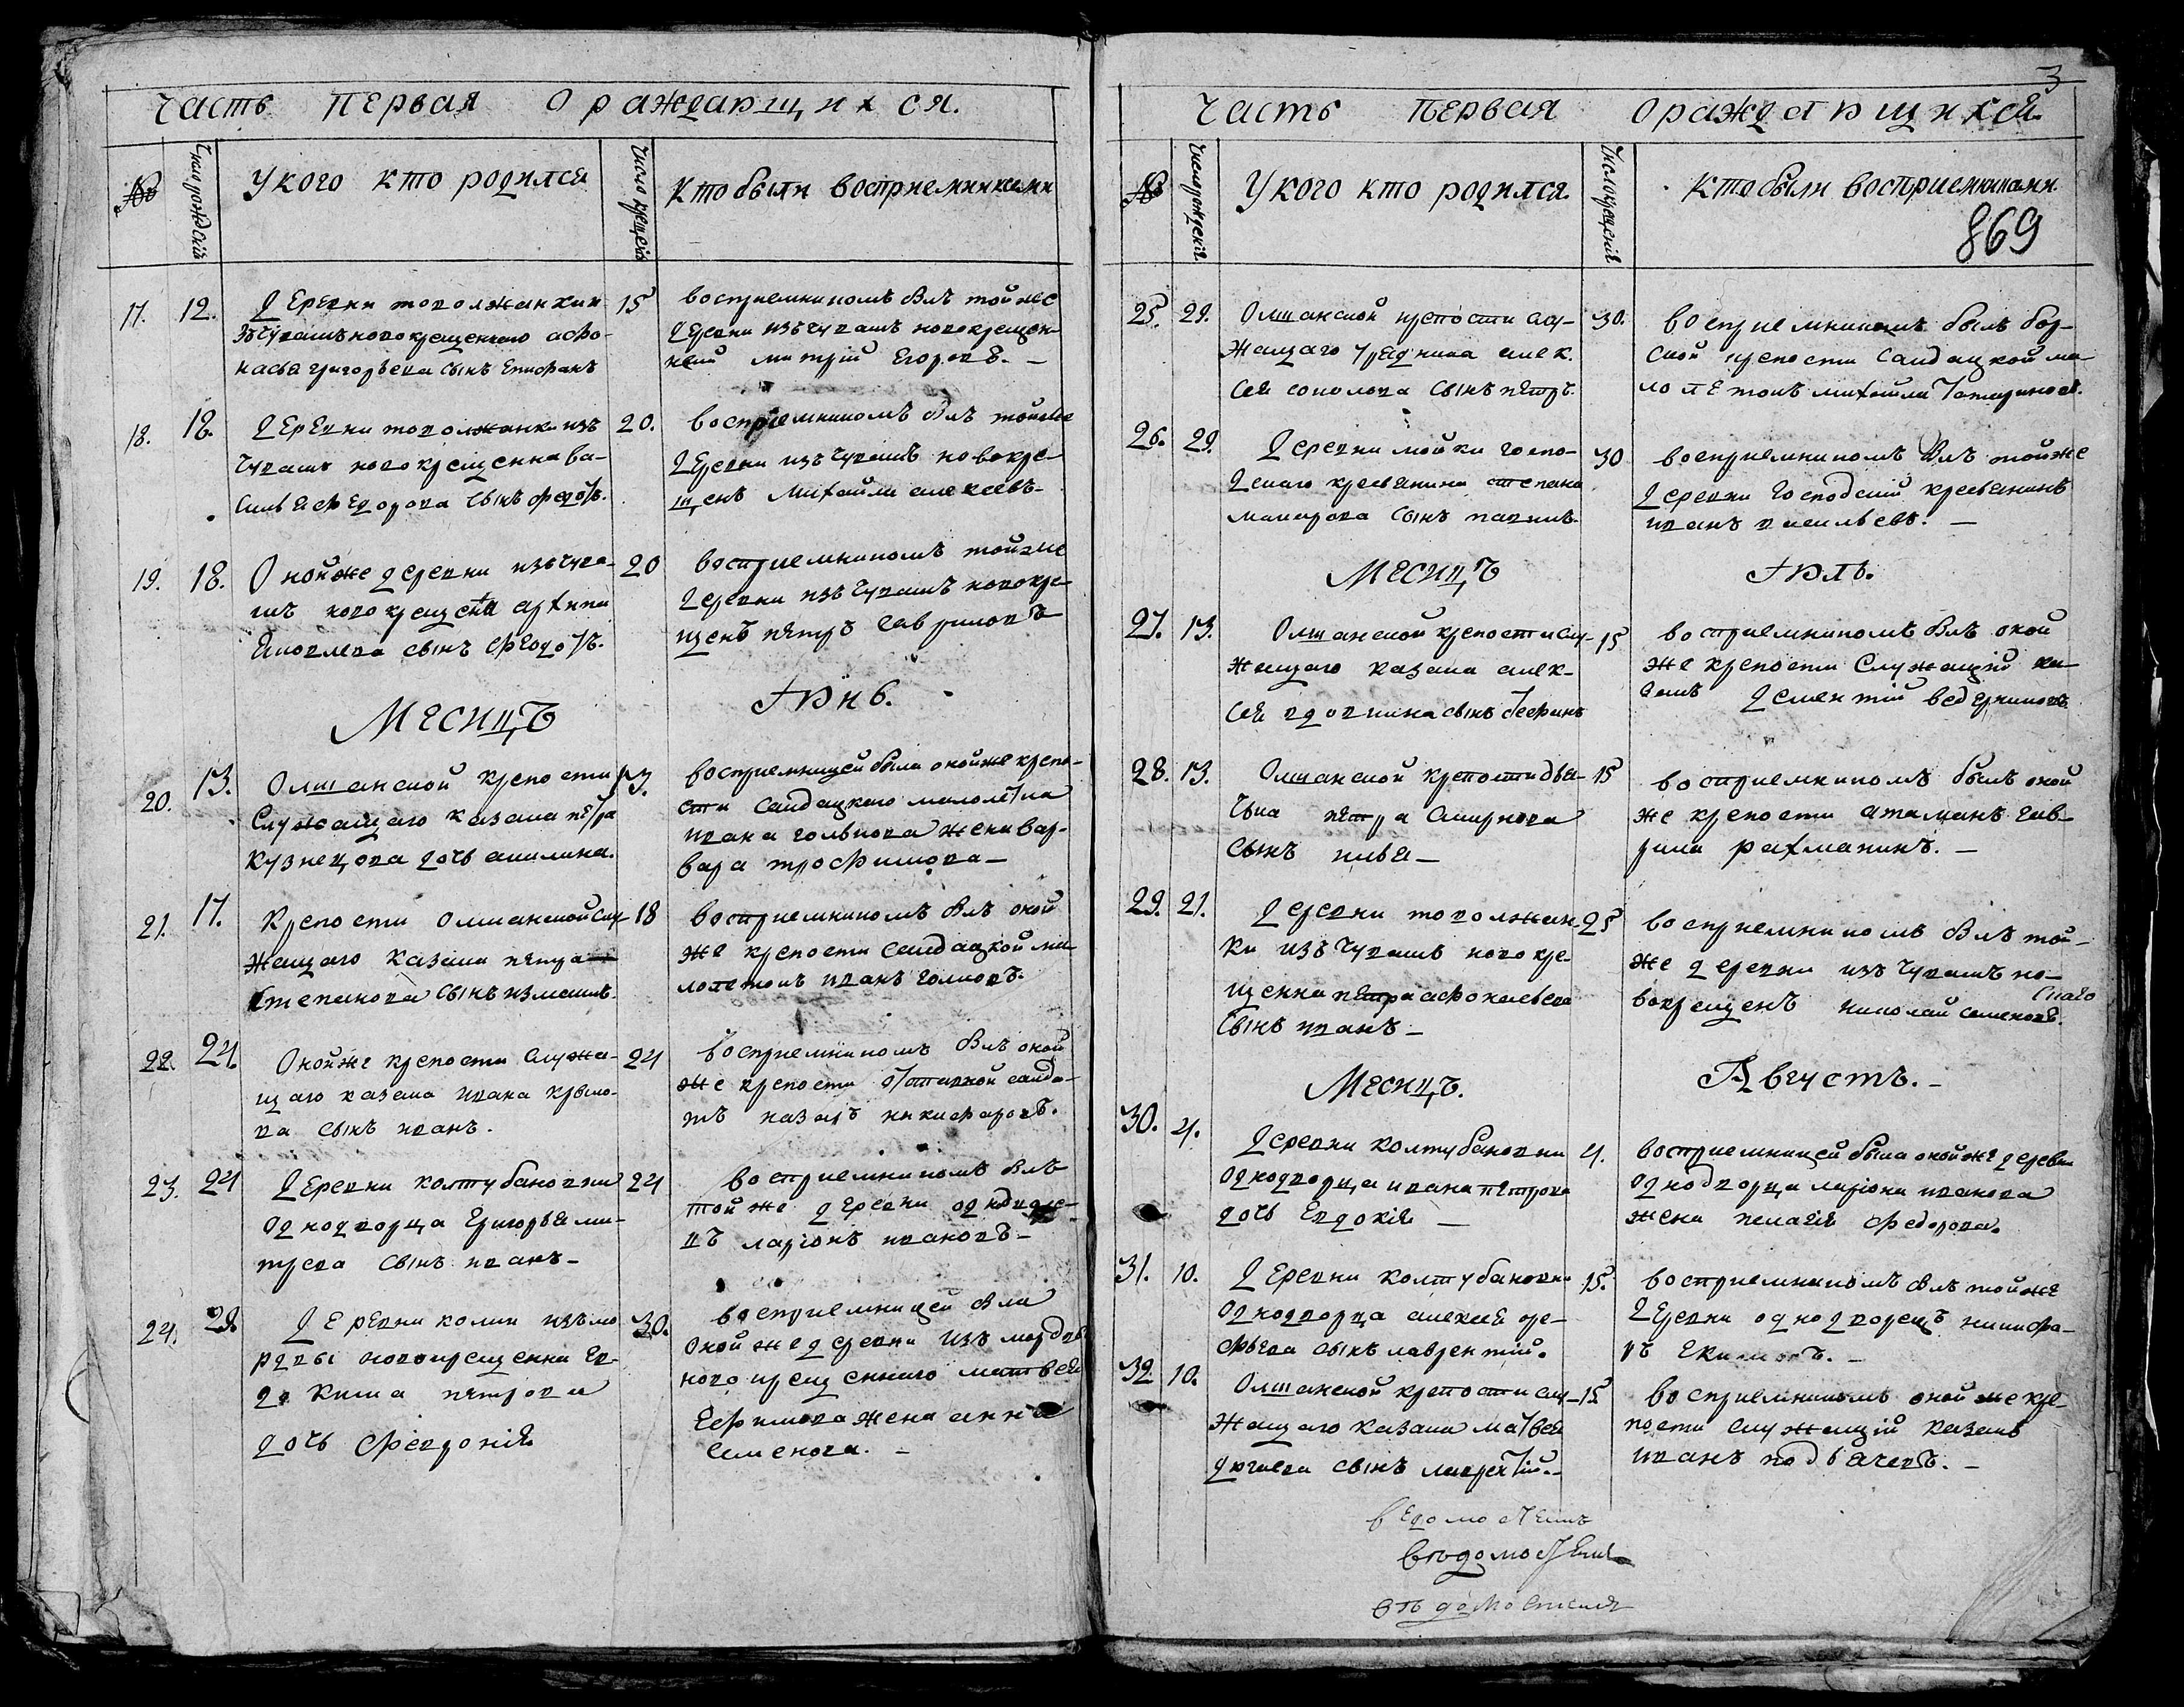 Часть первая о раждающихся.
№
Число рождениѣ
У кого кто родился
Число крещениѣ
Кто были восприемниками
17. 12. Деревни товолжанки
изъ чувашъ новокрещеннаго Афо-
насья Григорьева сынъ Епифанъ
15 восприемникомъ былъ той же
деревни изъ чувашъ новокрещен-
ный Митрий Егоровъ. —
18. 18. Деревни товолжанки изъ
чувашъ новокрещенна Ва-
силья Федорова сынъ Федотъ.
20. восприемникомъ былъ той же
деревни изъ чувашъ новокре-
щенъ Михайла Алексеевъ
19. 18. Оной же деревни изъ чува-
шъ новокрещена Архипа
Яковлева сынъ Феодотъ.
20 восприемникомъ той же
деревни изъ чувашъ новокре-
щенъ Петръ Гавриловъ
Месицъ Іюнь.
20. 13. Олшанской крепости
служащаго казака Петра
Кузнецова дочь Акилина.
13. восприемницей была оной же крепо-
сти салдацкаго малолетка
Ивана жена Вар-
вара Трофимова —
21. 17. Крепости Олшанской слу-
жащаго казака Петра
Степанова сынъ Измаилъ.
18 восприемникомъ былъ оной
же крепости салдацкой ма-
лолетокъ Иванъ
22. 24. Оной же крепости служа-
щаго казака Ивана Крымо-
ва сынъ Иванъ.
24 восприемникомъ былъ оной
же крепости отставной салда-
тъ Назаръ Никифаровъ.
23. 24 Деревни Колтубановки
однодворца Григорья Ми-
трева сынъ Иванъ —
24 восприемникомъ былъ
той же деревни однодворе-
цъ Ларіонъ Ивановъ —
24. 28. Деревни Колки изъ мо
рдвы новокрещенна Ев-
докима Петрова
дочь Февронія
30. восприемницей была
оной же деревни изъ мордвы
новокрещеннаго Матвея
Ефимова жена Анна
Семенова. —
3
Часть первая о раждающихся.
№
Число рождениѣ
У кого кто родился.
Число крещениѣ
Кто были восприемниками
869
25. 29. Олшанской крепости слу-
жащаго урядника Алек-
сея Соколова сынъ Петръ.
30. восприемникомъ былъ бор-
ской крепости салдацкой ма-
лолетокъ Михайла Татариновъ.
26. 29. Деревни Мойки госпо-
дскаго кресьянина Степана
Макарова сынъ Павилъ.
30 восприемникомъ былъ той же
деревни господский кресьянинъ
Иванъ Васильевъ. —
Месицъ Іюль.
27. 13. Олшанской крепости слу-
жащаго казака Алек-
сея Вдовкина сынъ Стефанъ
15 восприемникомъ былъ оной
же крепости служащій ка-
закъ Дементій Ведерниковъ.
28. 13. Олшанской крепости дья-
чка Петра Смирнова
сынъ Илья —
15 восприемникомъ былъ оной
же крепости атаманъ Гав-
рила Рахманинъ. —
29. 21. Деревни товолжан-
ки изъ чувашъ новокре-
щенна Петра Афонасьева
сынъ Иванъ —
25 восприемникомъ былъ той-
же деревни изъ чувашъ но-
вокрещенъ Николай Семеновъ.
Месицъ. Августъ. —
30. 4. Деревни Колтубановки
однодворца Ивана Петрова
дочь Евдокія —
4. восприемницей была оной же деревни
однодворца Ларіона Иванова
жена Пелагія Федорова.
31. 10. Деревни Колтубановки
однодворца Алексея Оре-
фьева сынъ Лаврентій.
15. восприемникомъ былъ той же
деревни однодворецъ Никифа-
ръ Екимовъ. —
32 10. Олшанской крепости слу-
жащаго казака Матвея
сынъ Лаврентій. —
15 восприемникомъ оной же кре-
пости служащій казакъ
Иванъ Подьячевъ. —